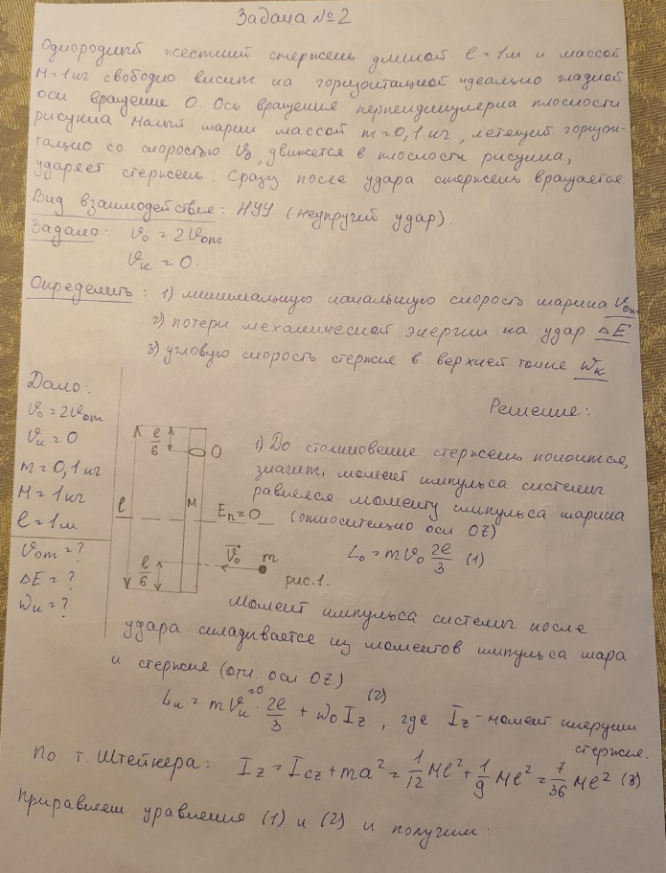 Задача №2
Однородный жесткий стержень длиной l = 1м и массой
M = 1 кг свободно висит на горизонтальной идеально гладкой
оси вращение O. Ось вращения перпендикулярна плоскости
рисунка. Малый шарик массой m = 0,1 кг, летящий горизон-
тально со скоростью V₀, движется в плоскости рисунка,
ударяет стержень. Сразу после удара стержень вращается
Вид взаимодействие: НУУ (неупругий удар).
Задано: V₀ = 2V₀m
Vк = 0.
Определить: 1) минимальную начальную скорость шарика V₀m
2) потери механической энергии на удар ΔE
3) угловую скорость стержня в верхней точке ωк
Дано:
V₀ = 2V₀m
Vк = 0
m = 0,1 кг
M = 1 кг
l = 1м
V₀m = ?
ΔE = ?
ωк = ?
l/6
O
l
M
Eп = 0
l/6
V₀
m
рис. 1.
Решение:
1) До столкновение стержень покоится,
значит, момент импульса системы
равнялся моменту импульса шарика
(относительно оси OZ)
L₀ = mV₀ 2l/3 (1)
Момент импульса системы после
удара складывается из моментов импульса шара
и стержня (отн. оси OZ.)
Lк = mVк⁼⁰ · 2l/3 + ω₀Iz (2), где Iz - момент инерции
стержня.
По т. Штейнера: Iz = Icz + ma² = 1/12 Ml² + 1/9 Ml² = 7/36 Ml² (3)
Приравняем уравнения (1) и (2) и получим: